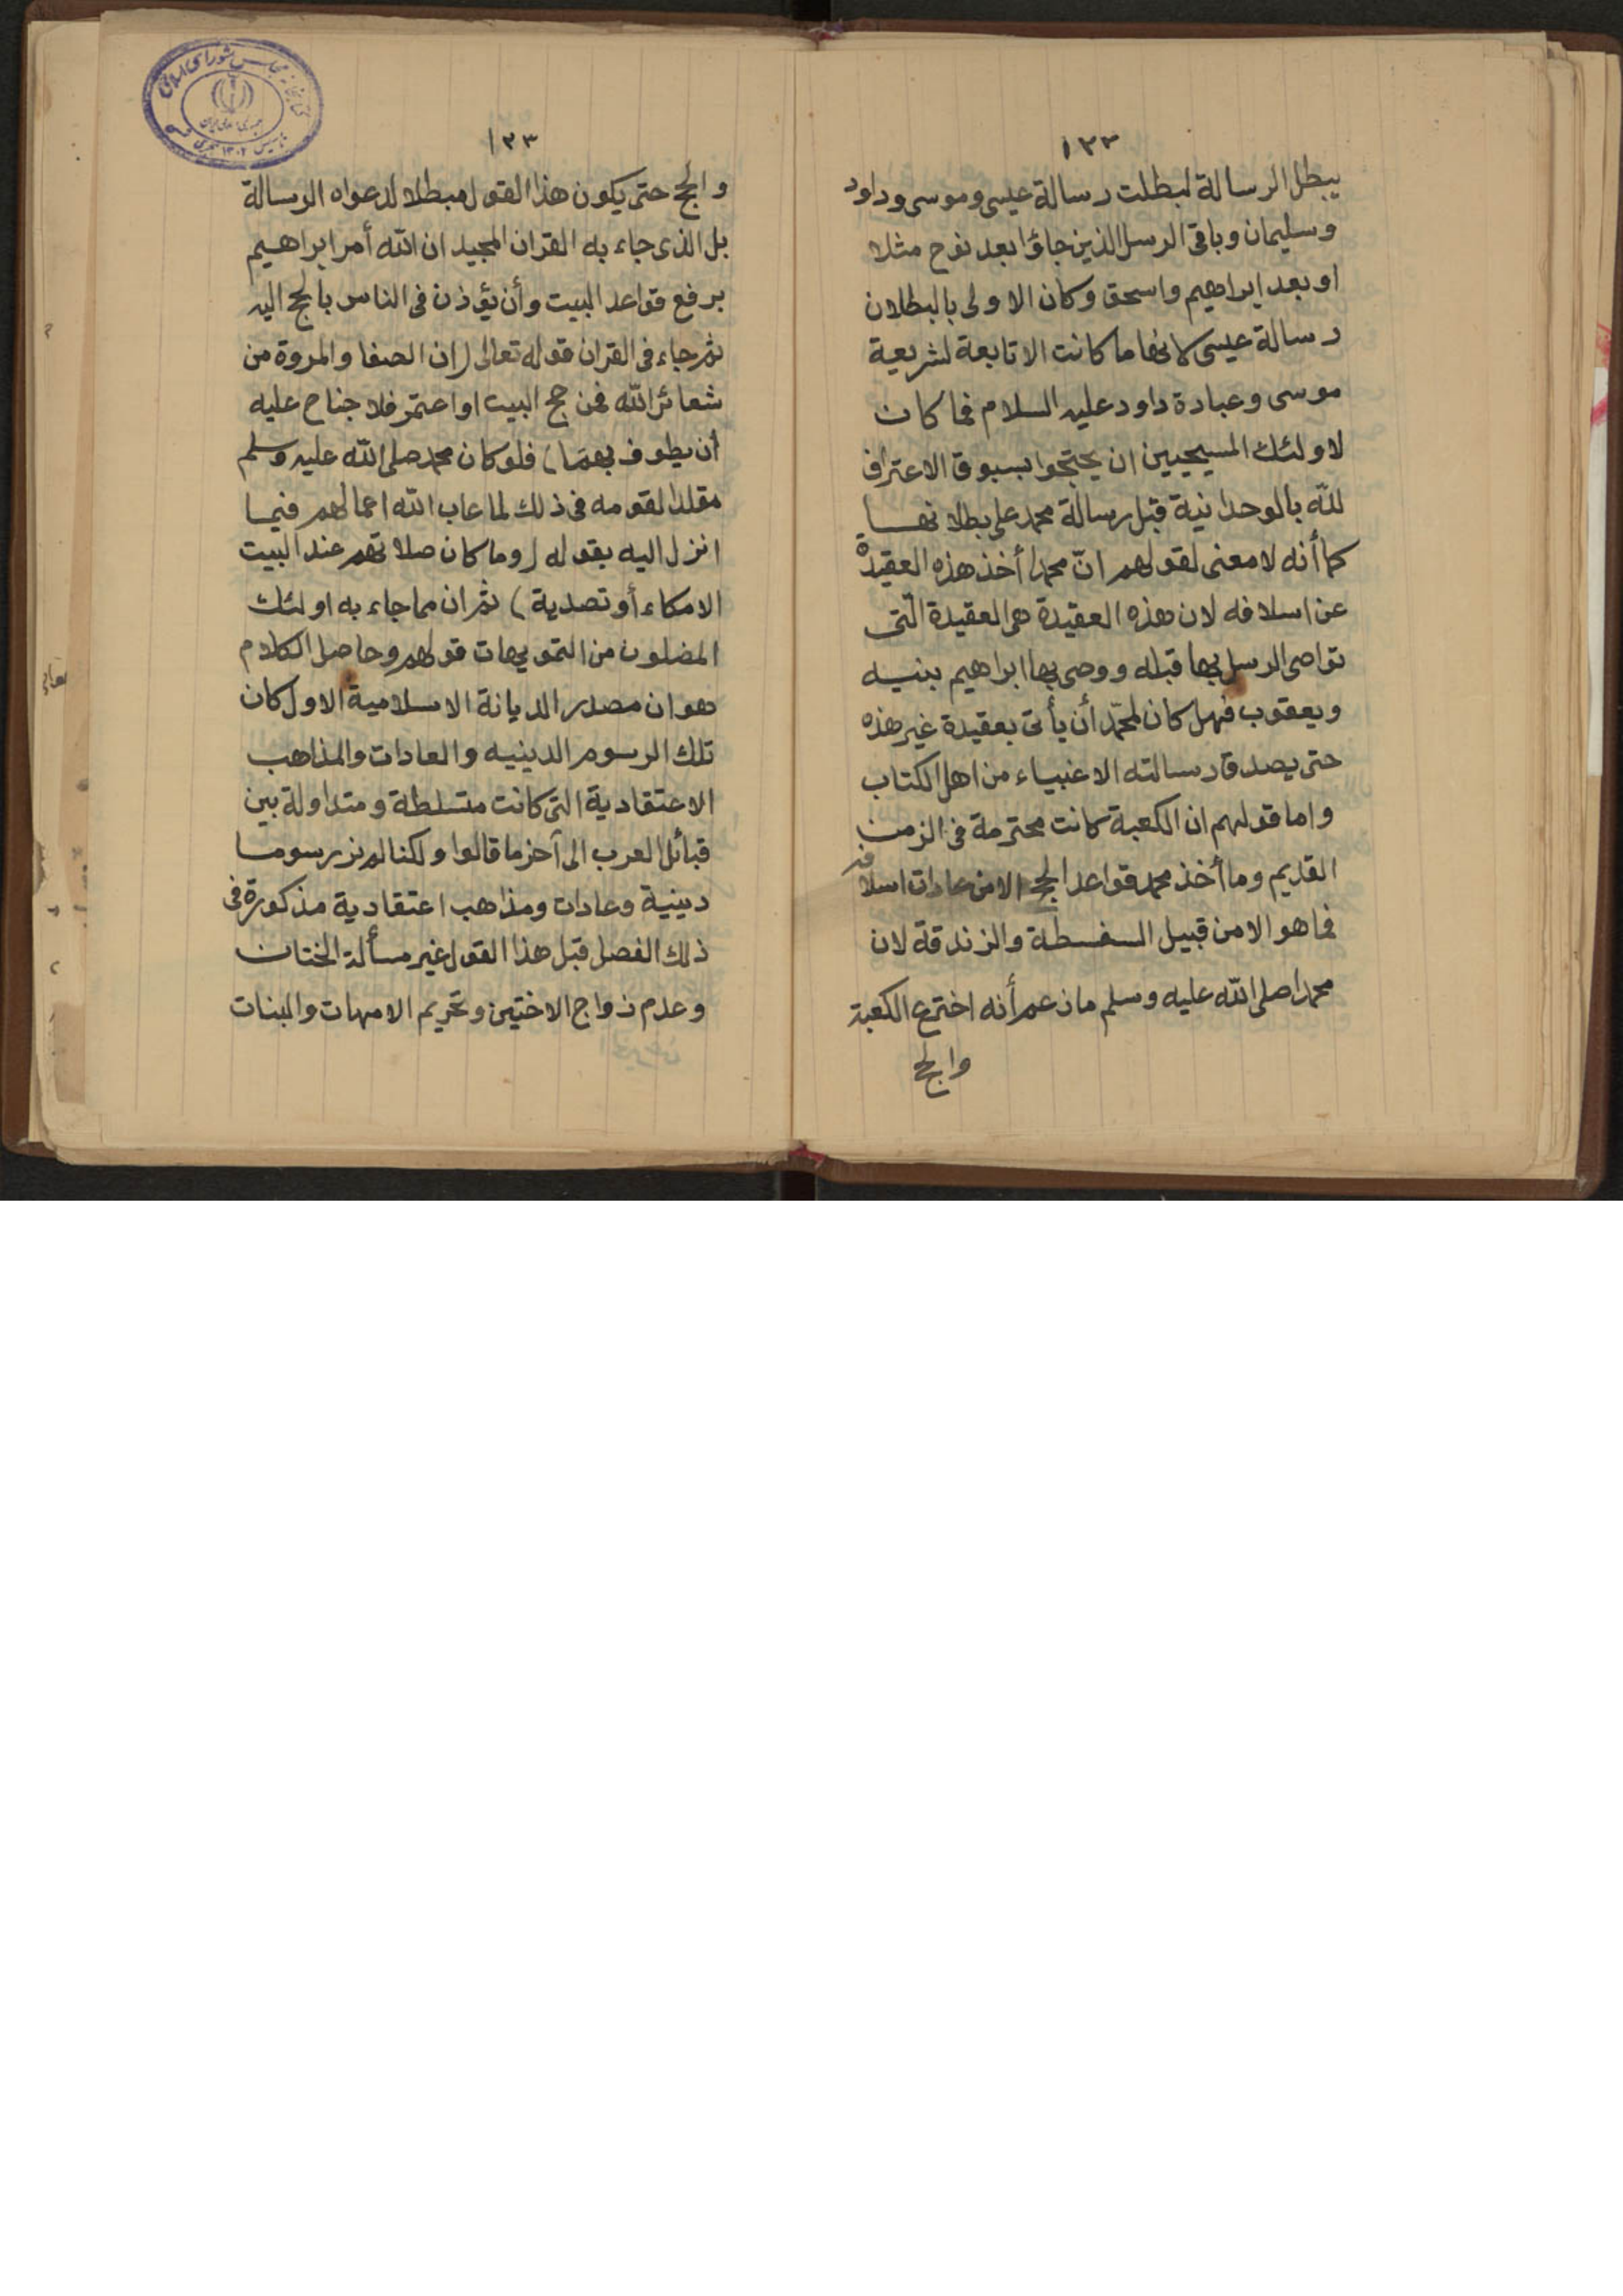 ١٢٢
يبطل الرسالة لبطلت رسالة عيسى وموسى وداود
وسليمان وباقى الرسل الذين جاؤا بعد نوح مثلا
او بعد ابراهيم واسحق وكان الاولى بالبطلان
رسالة عيسى لانها ما كانت الا تابعة لشريعة
موسى وعبادة داود عليه السلام فما كان
لاولئك المسيحيين ان يحتجوا بسبوق الاعتراف
لله بالوحدانية قبل رسالة محمد على بطلانها
كما أنه لا معنى لقولهم انّ محمدا أخذ هذه العقيدة
عن اسلافه لان هذه العقيدة هى العقيدة الّتى
تواصى الرسل بها قبله ووصى بها ابراهيم بنيه
ويعقوب فهل كان لمحمّد أن يأتى بعقيدة غير هذه
حتى يصدق رسالته الاغبياء من اهل الكتاب
واما قولهم ان الكعبة كانت محترمة فى الزمن
القديم وما أخذ محمد قواعد الحج الا من عادات اسلافه
فما هو الا من قبيل السفسطة والزندقة لان
محمدا صلى الله عليه وسلم ما زعم أنه اخترع الكعبة
والحج
١٢٣
والحج حتى يكون هذا القول مبطلا لدعواه الرسالة
بل الذى جاء به القران المجيد ان الله أمر ابراهيم
برفع قواعد البيت وأن يؤذن فى الناس بالحج اليه
ثم جاء فى القران قوله تعالى (ان الصفا والمروة من
شعائر الله فمن حج البيت او اعتمر فلا جناح عليه
أن يطوف بهما) فلو كان محمد صلى الله عليه وسلم
مقلدا لقومه فى ذلك لما عاب الله اعمالهم فيما
انزل اليه بقوله (وما كان صلاتهم عند البيت
الا مكاء أو تصدية) ثم ان مما جاء به اولئك
المضلون من التمويهات قولهم وحاصل الكلام
هو ان مصدر الديانة الاسلامية الاول كان
تلك الرسوم الدينيه والعادات والمذاهب
الاعتقادية التى كانت متسلطة ومتداولة بين
قبائل العرب الى آخر ما قالوا ولكنا لم نر رسوما
دينية وعادات ومذاهب اعتقادية مذكورة فى
ذلك الفصل قبل هذا القول غير مسألة الختان
وعدم زواج الاختين وتحريم الامهات والبنات